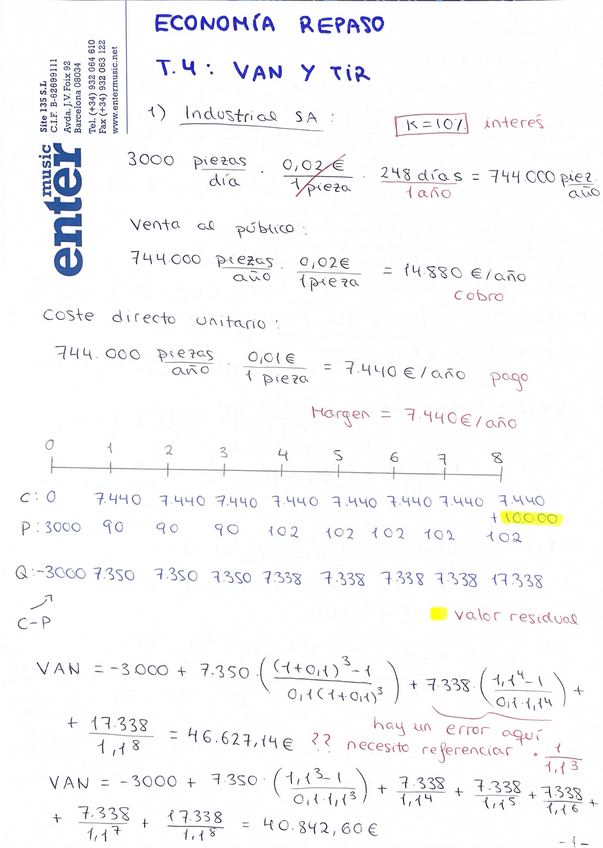 ECONOMÍA REPASO
T.4: VAN Y TIR
Site 135 S.L
C.I.F. B-62699111
Avda. J.V. Foix 92
Barcelona 08034
Tel. (+34) 932 064 610
Fax (+34) 932 063 122
www.entermusic.net
enter music
1) Industrial SA: K=10% interés
3000 piezas/día · 0,02€/1 pieza · 248 días/1 año = 744000 piez./año
Venta al público:
744.000 piezas/año · 0,02€/1 pieza = 14.880 €/año
cobro
Coste directo unitario:
744.000 piezas/año · 0,01€/1 pieza = 7.440 €/año pago
Margen = 7.440€/año
0 1 2 3 4 5 6 7 8
C: 0 7.440 7.440 7.440 7.440 7.440 7.440 7.440 7.440
+ 10.000
P: 3000 90 90 90 102 102 102 102 102
Q: -3000 7.350 7.350 7.350 7.338 7.338 7.338 7.338 17.338
C-P
valor residual
VAN = -3.000 + 7.350 · ((1+0,1)^3-1 / 0,1(1+0,1)^3) + 7.338 · (1,1^4-1 / 0,1·1,1^4) +
+ 17.338/1,1^8 = 46.627,14€ ?? hay un error aquí
necesito referenciar · 1/1,1^3
VAN = -3000 + 7.350 · (1,1^3-1 / 0,1·1,1^3) + 7.338/1,1^4 + 7.338/1,1^5 + 7.338/1,1^6 +
+ 7.338/1,1^7 + 17.338/1,1^8 = 40.842,60€
-1-